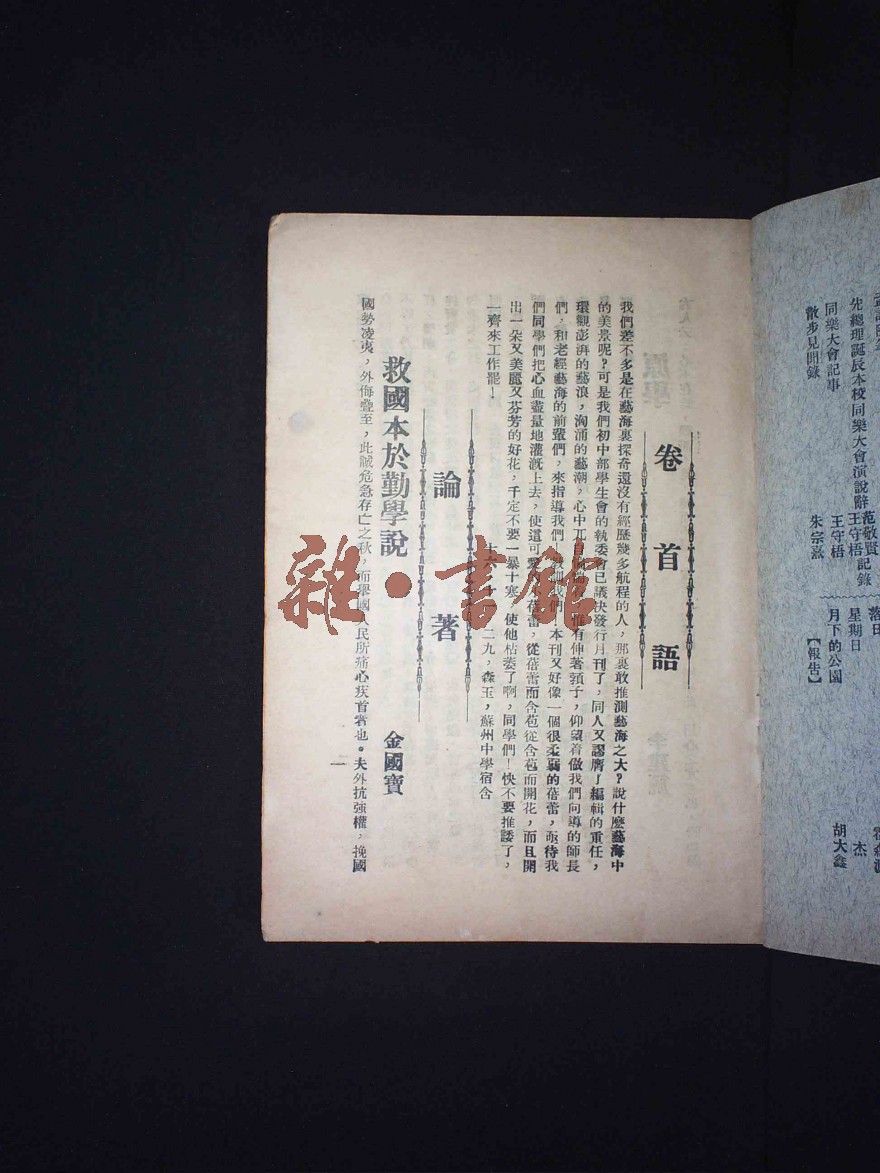 先總理誕辰本校同樂大會演說辭 范敬賢 王守梧 記錄
同樂大會記事 王守梧
散步見聞錄 朱宗熹
星期日 杰
月下的公園 胡大鑫
【報告】
卷首語
我們差不多是在藝海裏探奇還沒有經歷幾多航程的人，那裏敢推測藝海之大？說什麼藝海中
的美景呢？可是我們初中部學生會的執委會已議決發行月刊了，同人又謬膺了編輯的重任，
環觀澎湃的藝浪，洶涌的藝潮，心中 惟有伸著頸子，仰望着做我們向導的師長
們，和老經藝海的前輩們，來指導我們，教訓我們，本刊又好像一個很柔弱的蓓蕾，亟待我
們同學們把心血盡量地灌漑上去，使這可愛的蓓蕾，從蓓蕾而含苞從含苞而開花，而且開
出一朵又美麗又芬芳的好花，千定不要一暴十寒，使他枯萎了啊，同學們！快不要推諉了，
一齊來工作罷！
二九，森玉，蘇州中學宿舍
論著
救國本於勤學說 金國寶
國勢凌夷，外侮疊至，此誠危急存亡之秋，而舉國人民所痛心疾首者也。夫外抗強權，挽國
一
雜·書館